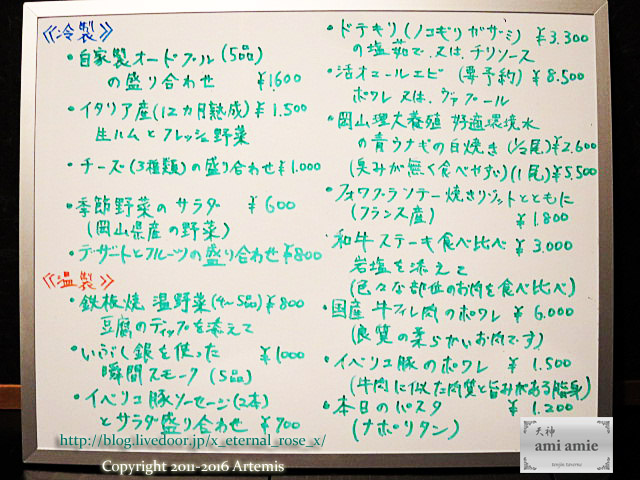 《冷製》
・自家製オードブル(5品)
の盛り合わせ ¥1.600
・イタリア産(12カ月熟成)¥1.500
生ハムとフレッシュ野菜
・チーズ(3種類)の盛り合わせ¥1.000
・季節野菜のサラダ ¥600
(岡山県産の野菜)
・デザートとフルーツの盛り合わせ¥800
《温製》
・鉄板焼 温野菜(4〜5品)¥800
豆腐のディップを添えて
・いぶし銀を使った ¥1000
瞬間スモーク(5品)
・イベリコ豚ソーセージ(2本)
とサラダ盛り合わせ ¥700
・ドテキリ(ノコギリガザミ) ¥3.300
の塩茹で 又は、チリソース
・活オマールエビ (要予約) ¥8.500
ポワレ 又は、ヴァプール
・岡山理大養殖 好適環境水
の青ウナギの白焼き(1/2尾)¥2.600
(臭みが無く食べやすい)(1尾)¥5.500
・フォワグラソテー焼きリゾットとともに
(フランス産) ¥1.800
・和牛ステーキ食べ比べ ¥3.000
岩塩を添えて
(色々な部位のお肉を食べ比べ)
・国産 牛フィレ肉のポワレ ¥6.000
(良質の柔らかいお肉です)
・イベリコ豚のポワレ ¥1.500
(牛肉に似た肉質と旨みがある脂身)
・本日のパスタ ¥1.200
(ナポリタン)
http://blog.livedoor.jp/x_eternal_rose_x/
Copyright 2011-2016 Artemis
天神
ami amie